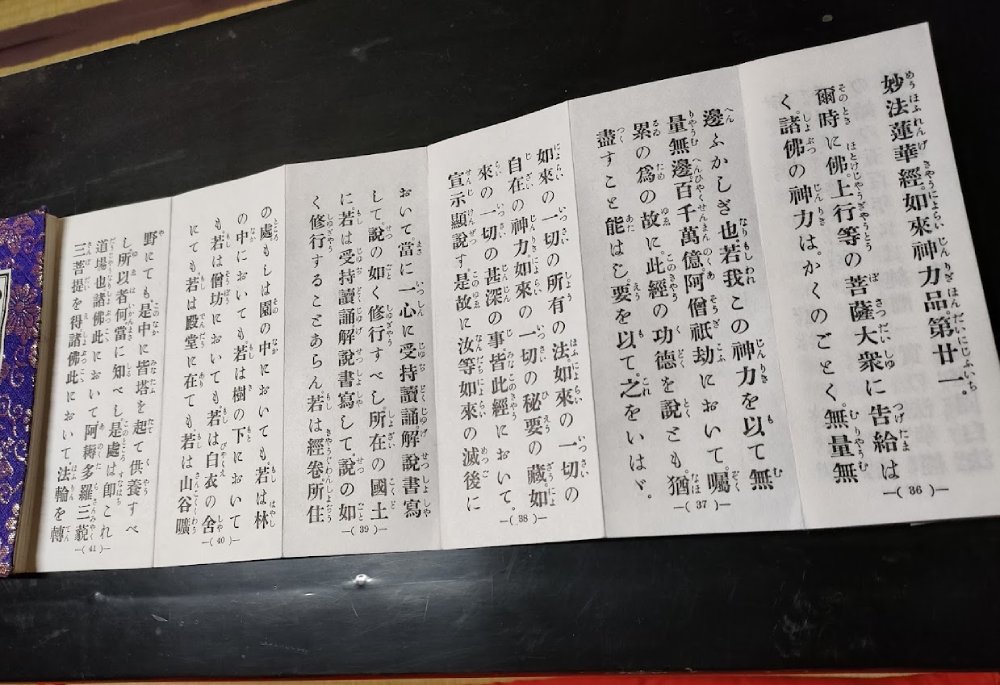 妙法蓮華經。如來神力品。第廿一。
爾時に佛。上行等の菩薩大衆に告給は
く。諸佛の神力は。かくのごとく。無量無
—( 36 )—
邊ふかしぎ也。若我この神力を以て無
量無邊百千萬億阿僧祇劫において。囑
累の爲の故に。此經の功德を說とも。猶
盡すこと能はじ。要を以て。之をいはゞ。
—( 37 )—
如來の一切の所有の法。如來の一切の
自在の神力。如來の一切の秘要の藏。如
來の一切の甚深の事。皆此經において。
宣示顯說す。是故に汝等如來の滅後に
—( 38 )—
おいて當に一心に受持讀誦解說書寫
して。說の如く修行すべし。所在の國土
に若は受持讀誦解說書寫して。說の如
く修行することあらん。若は經卷所住
—( 39 )—
の處もしは園の中においても。若は林
の中においても若は樹の下において
も若は僧坊においても若は白衣の舍
にても若は殿堂に在ても若は山谷曠
—( 40 )—
野にても是中に皆塔を起て供養すべ
し。所以者何當に知べし是處は卽これ
道場也諸佛此において阿耨多羅三藐
三菩提を得諸佛此において法輪を轉
—( 41 )—